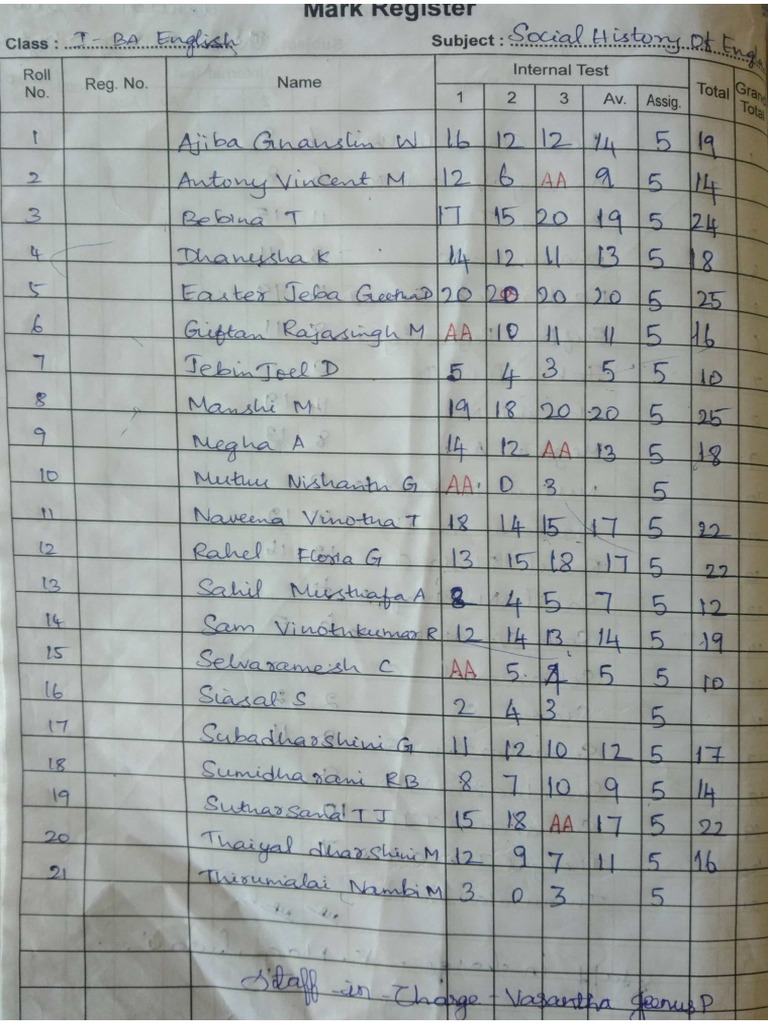 Mark Register
Class : I - BA English Subject : Social History Of Engl
Roll No. Reg. No. Name Internal Test Total Grand Total
1 2 3 Av. Assig.
1 Ajiba Gnanslin W 16 12 12 14 5 19
2 Antony Vincent M 12 6 AA 9 5 14
3 Bebina T 17 15 20 19 5 24
4 Dhanessha K 14 12 11 13 5 18
5 Easter Jeba Geetha D 20 20 20 20 5 25
6 Guftan Rajasingh M AA 10 11 11 5 16
7 Jebin Joel D 5 4 3 5 5 10
8 Manshi M 19 18 20 20 5 25
9 Megha A 14 12 AA 13 5 18
10 Muthu Nishanth G AA 0 3 5
11 Naveena Vinotha T 18 14 15 17 5 22
12 Rahel Floria G 13 15 18 17 5 22
13 Sahil Musthafa A 8 4 5 7 5 12
14 Sam Vinothkumar R 12 14 13 14 5 19
15 Selvaramesh C AA 5 4 5 5 10
16 Siasal S 2 4 3 5
17 Subadharshini G 11 12 10 12 5 17
18 Sumidharani RB 8 7 10 9 5 14
19 Sutharsana T J 15 18 AA 17 5 22
20 Thaiyal dharshini M 12 9 7 11 5 16
21 Thirumalai Nambi M 3 0 3 5
Staff-in-Charge - Vasantha Jeenus P